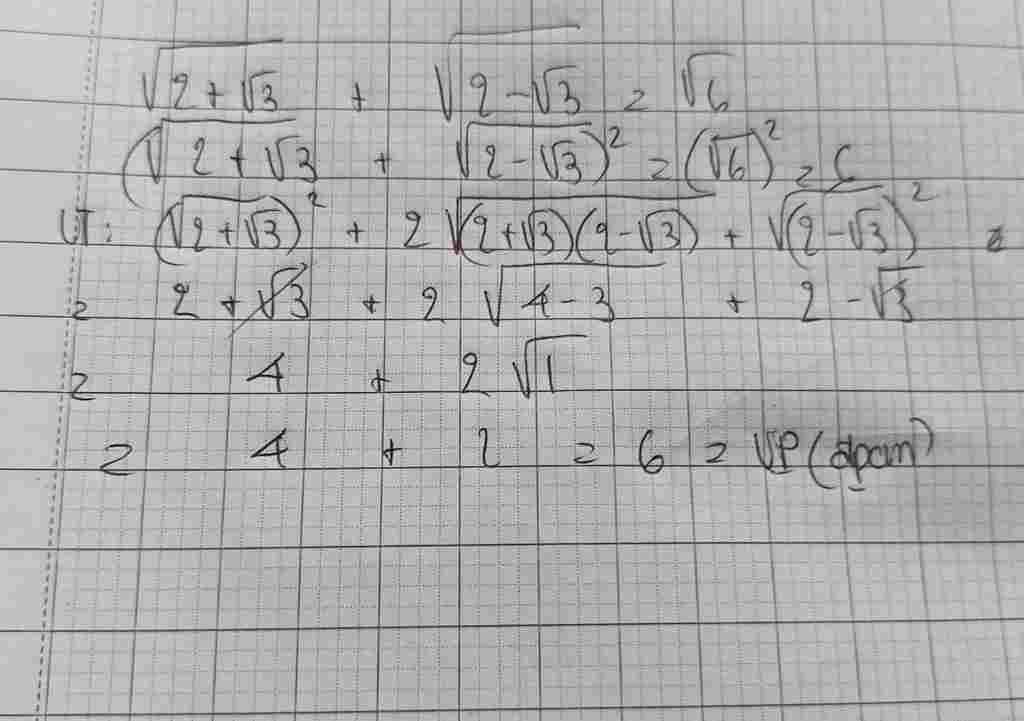 √(2+√3) + √(2-√3) = √6
(√(2+√3) + √(2-√3))² = (√6)² = 6
VT: (√(2+√3))² + 2√((2+√3)(2-√3)) + (√(2-√3))² =
= 2 + √3 + 2√(4-3) + 2 - √3
= 4 + 2√1
= 4 + 2 = 6 = VP (đpcm)